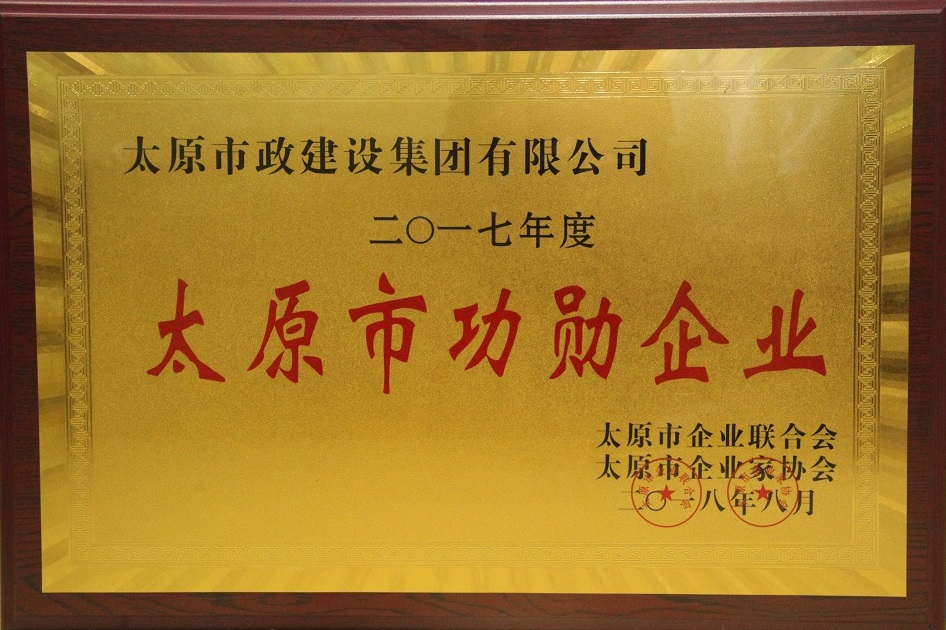 太原市政建设集团有限公司
二〇一七年度
太原市功勋企业
太原市企业联合会
太原市企业家协会
二〇一八年八月